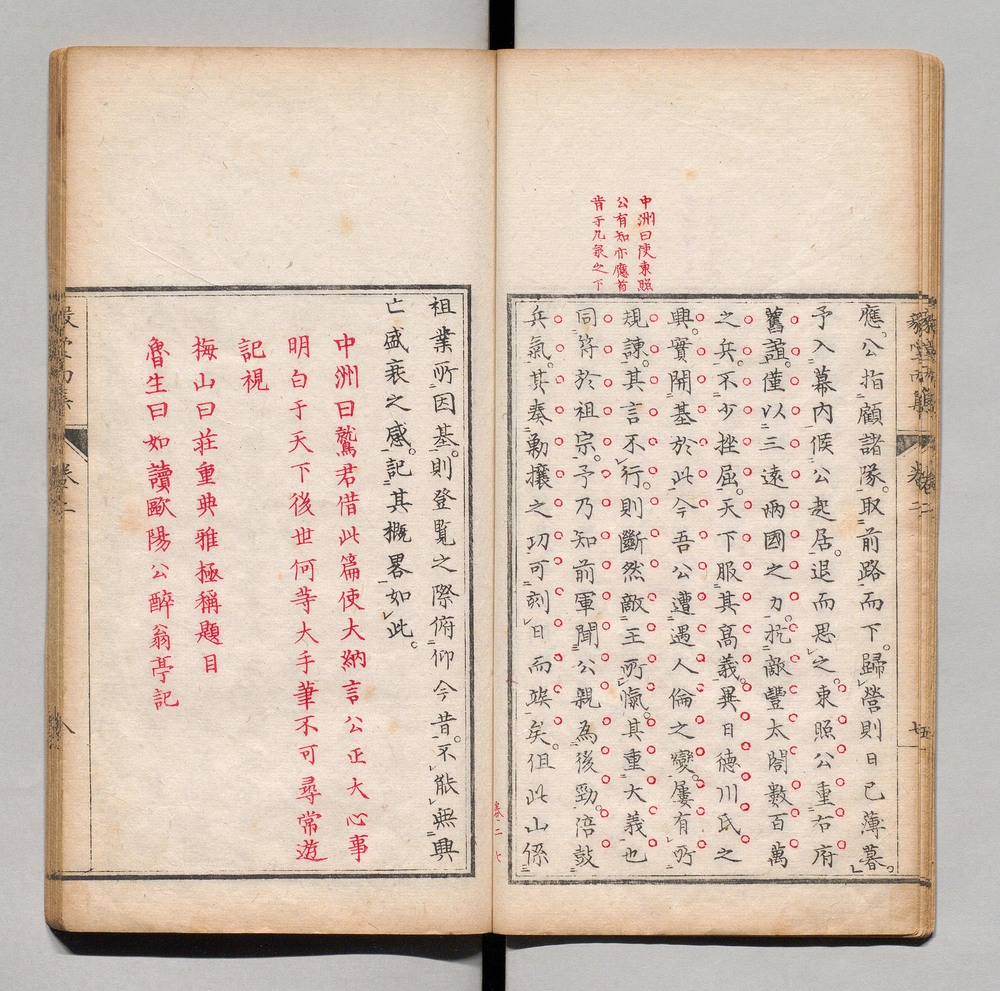 中洲曰使東照
公有知亦應首
肯于九泉之下
應。公指顧諸隊。取前路而下。歸營則日已薄暮。
予入幕內候公起居。退而思之。東照公重右府
舊誼。僅以三遠兩國之力。抗敵豐太閤數百萬
之兵。不少挫屈。天下服其高義。異日德川氏之
興。實開基於此。今吾公遭遇人倫之變。屢有所
規諫。其言不行。則斷然敵王所愾。其重大義也
同符於祖宗。予乃知前軍聞公親為後勁。涪鼓
兵氣。其奏勦攘之功可刻日而竢矣。但此山係
卷二 七
祖業所因基。則登覽之際。俯仰今昔。不能無興
亡盛衰之感。記其概畧如此。
中洲曰鷲君借此篇使大納言公正大心事
明白于天下後世何等大手筆不可尋常遊
記視
梅山曰莊重典雅極稱題目
魯生曰如讀歐陽公醉翁亭記
卷二
八